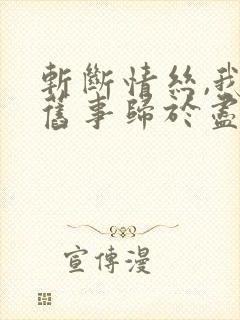 斬斷情絲,我
舊事歸於盡
宣傳漫